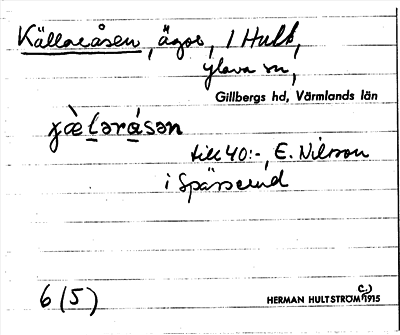 Källaråsen, ägor, 1 Hult,
Ylava sn,
Gillbergs hd, Värmlands län
ɟæ̀lərásən
till 40:-, E. Nilsson
i Spässerud
6 (5)
HERMAN HULTSTRÖM c:) 1915